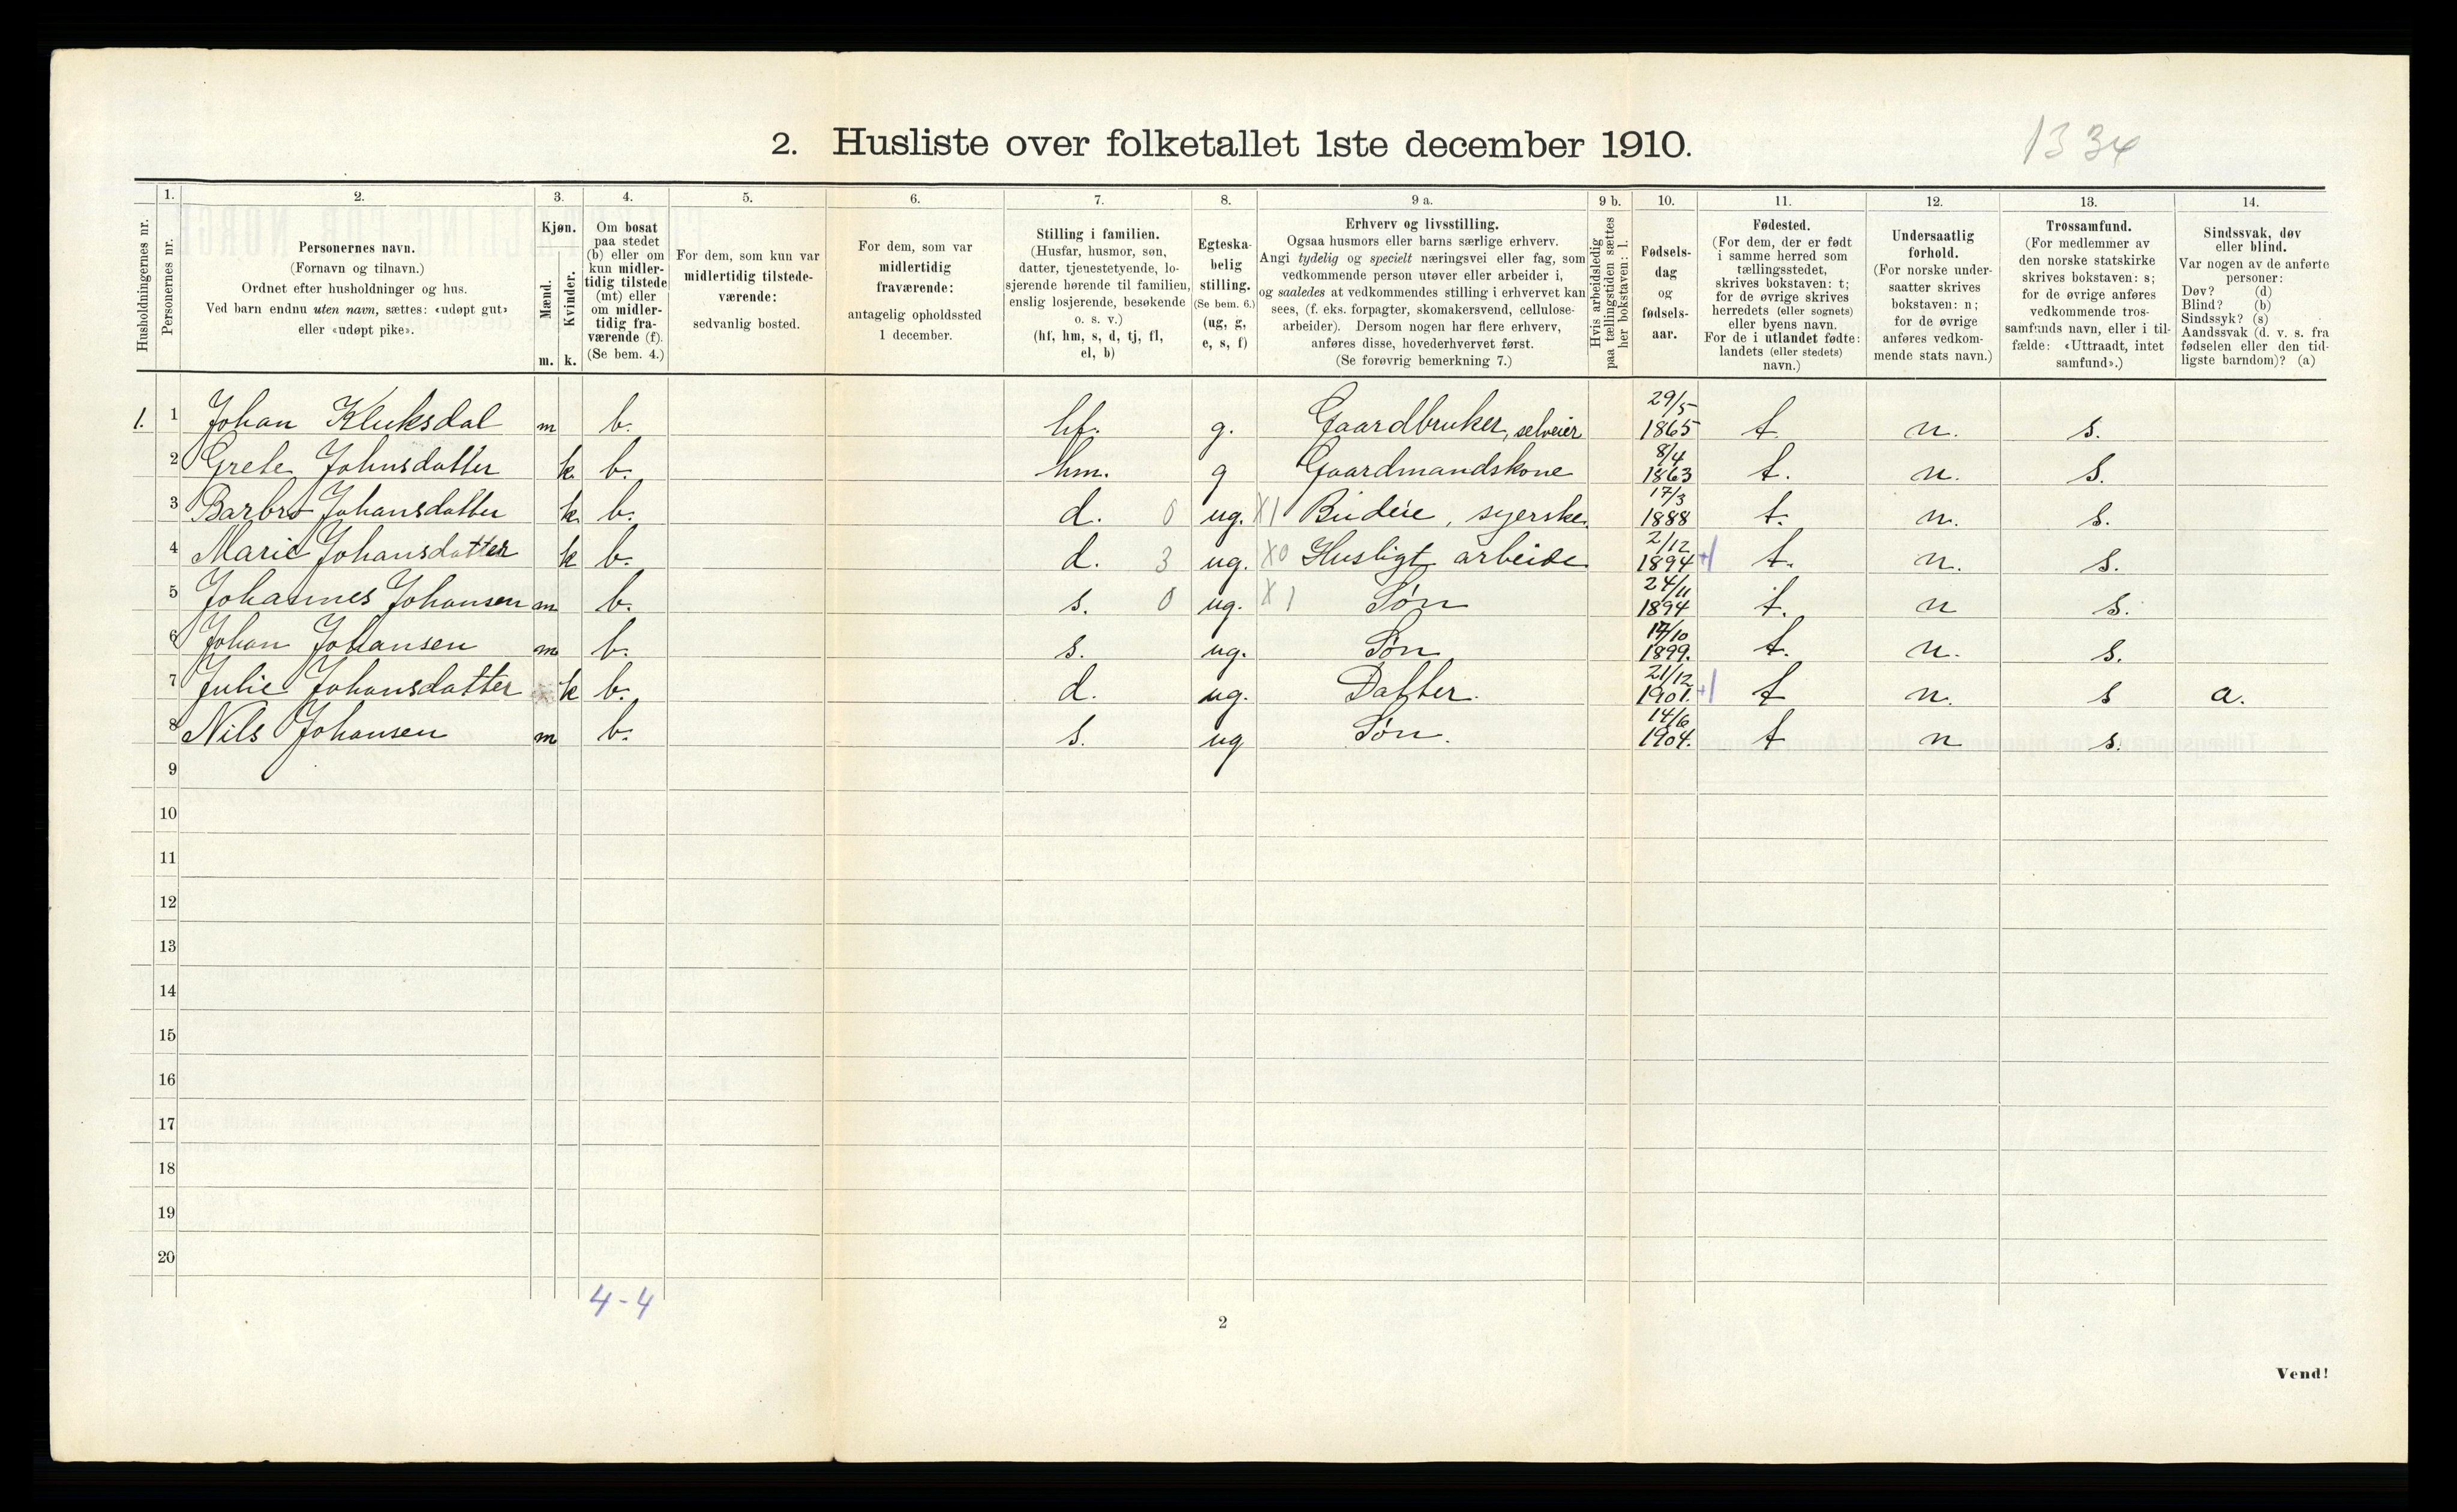 2. Husliste over folketallet 1ste december 1910.
1334
Husholdningernes nr.
1.
Personernes nr.
2.
Personernes navn.
(Fornavn og tilnavn.)
Ordnet efter husholdninger og hus.
Ved barn endnu uten navn, sættes: «udøpt gut»
eller «udøpt pike».
3.
Kjøn.
Mænd.
Kvinder.
m. k.
4.
Om bosat
paa stedet
(b) eller om
kun midler-
tidig tilstede
(mt) eller
om midler-
tidig fra-
værende (f).
(Se bem. 4.)
5.
For dem, som kun var
midlertidig tilstede-
værende:
sedvanlig bosted.
6.
For dem, som var
midlertidig
fraværende:
antagelig opholdssted
1 december.
7.
Stilling i familien.
(Husfar, husmor, søn,
datter, tjenestetyende, lo-
sjerende hørende til familien,
enslig losjerende, besøkende
o. s. v.)
(hf, hm, s, d, tj, fl,
el, b)
8.
Egteska-
belig
stilling.
(Se bem. 6.)
(ug, g,
e, s, f)
9 a.
Erhverv og livsstilling.
Ogsaa husmors eller barns særlige erhverv.
Angi tydelig og specielt næringsvei eller fag, som
vedkommende person utøver eller arbeider i,
og saaledes at vedkommendes stilling i erhvervet kan
sees, (f. eks. forpagter, skomakersvend, cellulose-
arbeider). Dersom nogen har flere erhverv,
anføres disse, hovederhvervet først.
(Se forøvrig bemerkning 7.)
9 b.
Hvis arbeidsledig
paa tællingstiden sættes
her bokstaven: l.
10.
Fødsels-
dag
og
fødsels-
aar.
11.
Fødested.
(For dem, der er født
i samme herred som
tællingsstedet,
skrives bokstaven: t;
for de øvrige skrives
herredets (eller sognets)
eller byens navn.
For de i utlandet fødte:
landets (eller stedets)
navn.)
12.
Undersaatlig
forhold.
(For norske under-
saatter skrives
bokstaven: n;
for de øvrige
anføres vedkom-
mende stats navn.)
13.
Trossamfund.
(For medlemmer av
den norske statskirke
skrives bokstaven: s;
for de øvrige anføres
vedkommende tros-
samfunds navn, eller i til-
fælde: «Uttraadt, intet
samfund».)
14.
Sindssvak, døv
eller blind.
Var nogen av de anførte
personer:
Døv? (d)
Blind? (b)
Sindssyk? (s)
Aandssvak (d. v. s. fra
fødselen eller den tid-
ligste barndom)? (a)
1. 1 Johan Kluksdal m b. hf. g. Gaardbruker, selveier 29/5 1865 t. n. s.
2 Grete Johnsdatter k. b. hm. g Gaardmandskone 8/4 1863 t. n. s.
3 Barbro Johansdatter k. b. d. 0 ug. X1 Budeie, syerske. 17/3 1888 t. n. s.
4 Marie Johansdatter k b. d. 3 ug. X0 Husligt arbeide. 2/12 1894 +1 t. n. s.
5 Johannes Johansen m b. s. 0 ug. X1 Søn 24/11 1894 t. n s.
6 Johan Johansen m b. s. ug. Søn 17/10 1899. t. n. s.
7 Julie Johansdatter k b. d. ug. Datter. 21/12 1901. +1 t n. s a.
8 Nils Johansen m b. s. ug Søn. 14/6 1904. t n s.
9
10
11
12
13
14
15
16
17
18
19
20
4-4
2
Vend!